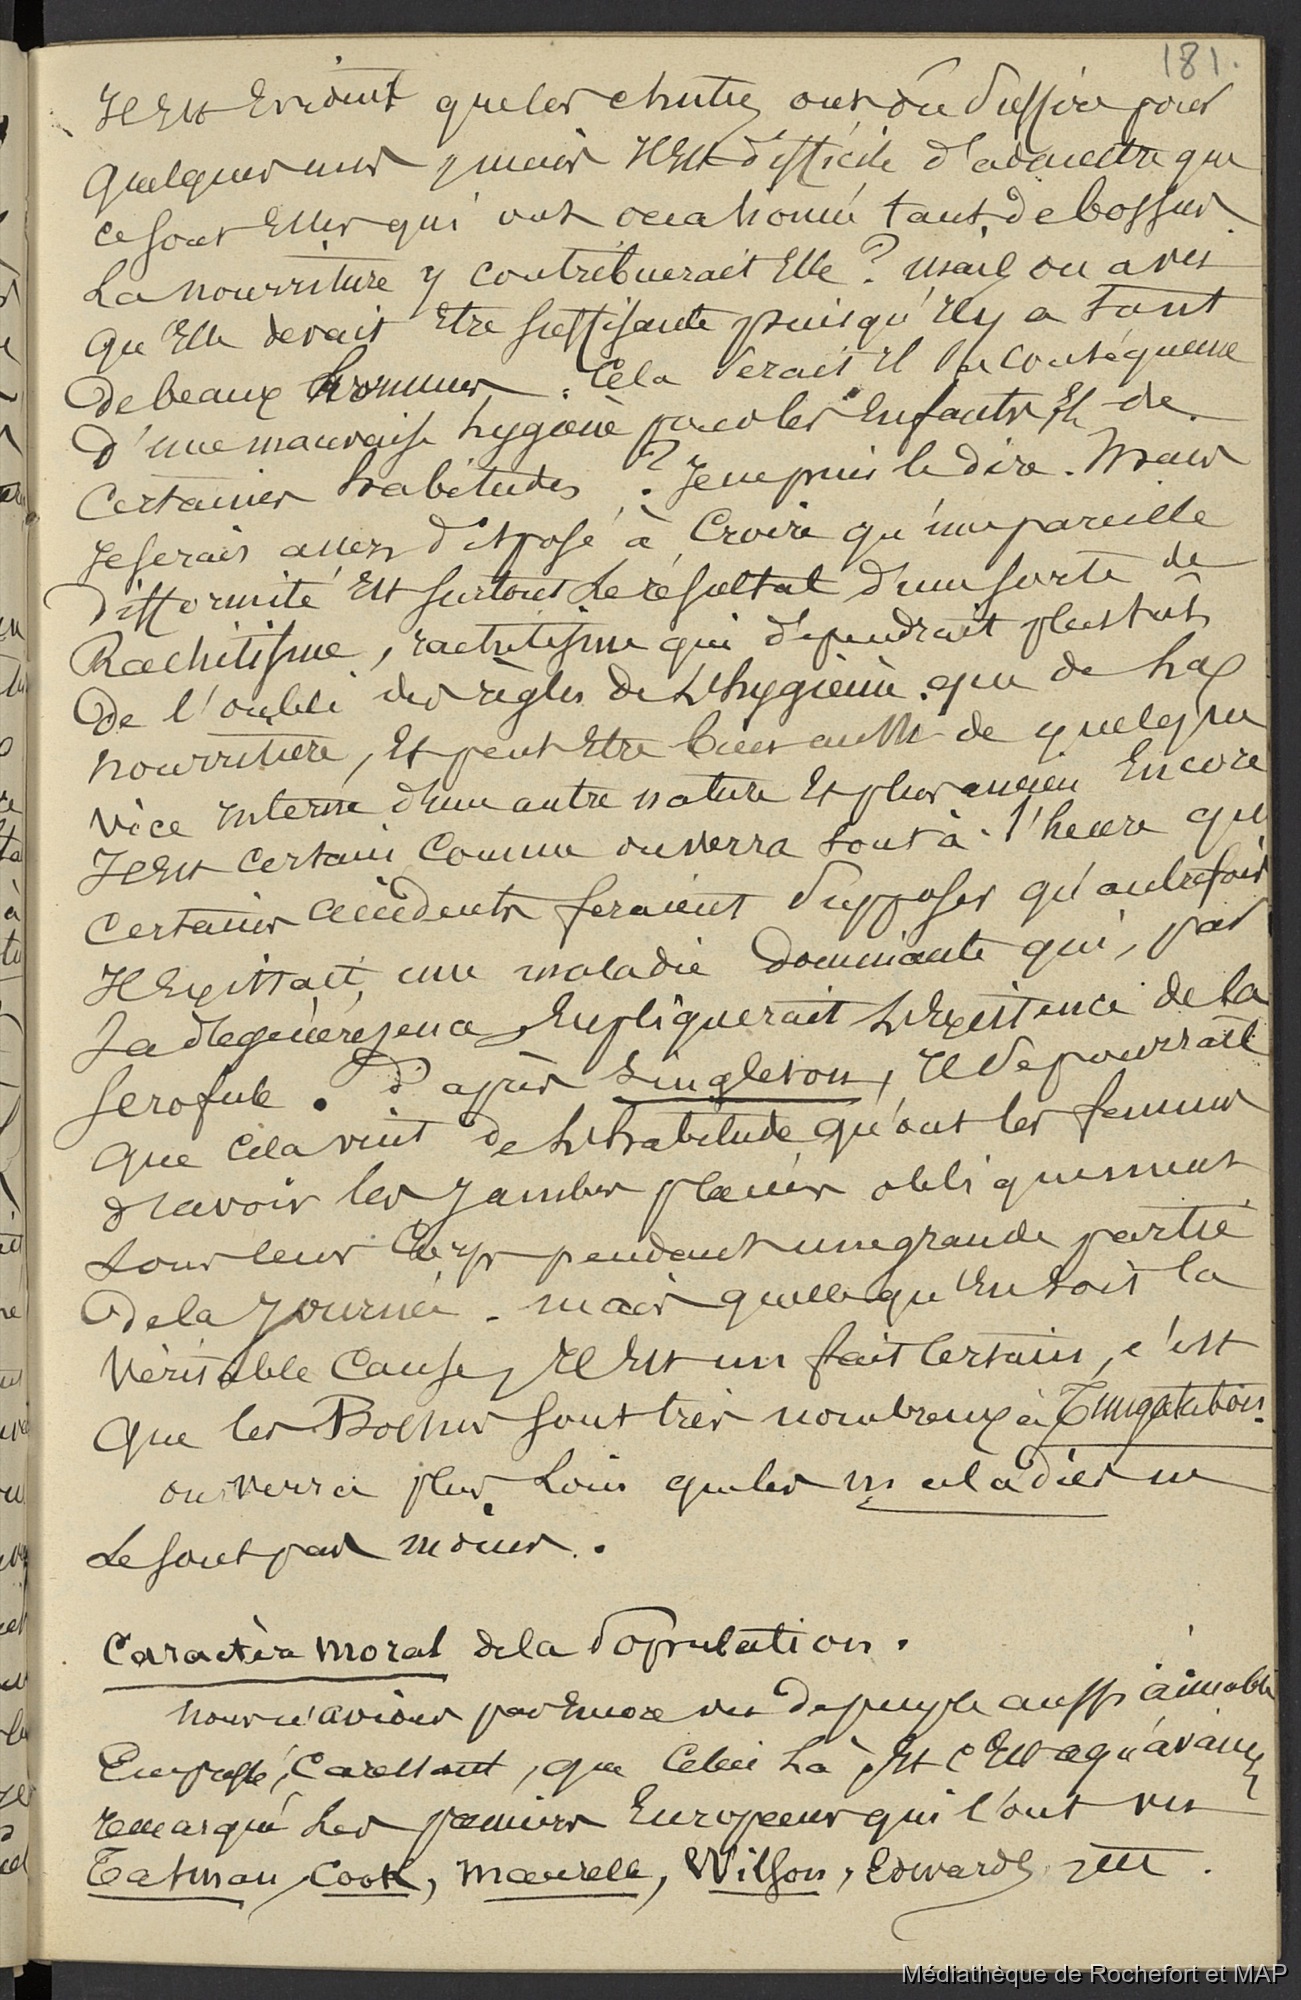 181.
Il Est Evident que les chutes ont dû suffire pour
quelques uns, mais Il Est difficile d'admettre que
ce sont Elles qui ont occasionné tant de bossus.
La nourriture y contribuerait Elle ? mais on a vu
qu'Elle devait Etre suffisante puisqu'Il y a tant
de beaux hommes. Cela serait Il la conséquence
d'une mauvaise hygiène pour les Enfants Et de
certaines habitudes ? Je ne puis le dire. Mais
Je serais assez disposé à Croire qu'une pareille
difformité Est surtout Le résultat d'une sorte de
Rachitisme, rachitisme qui dépendrait plustot
De l'oubli des règles de L'hygiène que de la
nourriture, Et peut Etre bien aussi de quelque
vice interne d'une autre nature Et plus ancien Encore
Il Est certain Comme on verra tout à l'heure que
certains accidents feraient supposer qu'autrefois
Il Existait une maladie dominante qui, par
sa dégénérescence, Expliquerait L'Existence de la
scrofule. D'après Singleton, Il se pourrait
que Cela vint de L'habitude qu'ont les femmes
d'avoir les Jambes placées obliquement
sous leur Corps pendant une grande partie
de la Journée. mais quelle qu'En soit la
véritable Cause, Il Est un fait Certain, c'est
que les Bossus sont très nombreux à Tongatabou.
on verra plus Loin que les maladies ne
Le sont pas moins.
Caractère Moral de la Population.
nous n'avions pas Encore vu de peuple aussi aimable
Empressé, Caressant, que Celui Là, Et c'Est ce qu'avaient
remarqué Les premiers Européens qui l'ont vu
Tasman, Cook, Maurelle, Wilson, Edwards, Ett.
Médiathèque de Rochefort et MAP